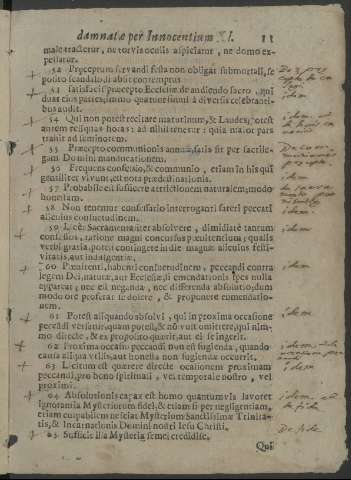 damnatæ per Innocentium XI. 11
male tractetur, ne torvis oculis aspiciatur, ne domo ex-
pellatur.
52 Præceptum servandi festa non obligat sub mortali, se
posito scandalo, si absit contemptus.
53 Satisfacit præcepto Ecclesiæ de audiendo sacro, qui
duas eius partes, immo quatuor simul à diversis celebranti-
bus audit.
54 Qui non potest recitare matutinum, & Laudes, potest
autem reliquas horas: ad nihil tenetur: quia maior pars
trahit ad se minorem.
55 Præcepto communionis annuæ satis fit per sacrile-
gam Domini manducationem.
56 Frequens confessio, & communio, etiam in his qui
gentiliter vivunt, est nota prædestinationis.
57 Probabile est sufficere attritionem naturalem, modo
honestam.
58 Non tenemur confessario interroganti fateri peccati
alicuius consuetudinem.
59 Licet Sacramentaliter absolvere, dimidiate tantum
confessos, ratione magni concursus pænitentium; qualis
verbi gratia, potest contingere in die magnæ alicuius festi-
vitatis, aut indulgentiæ.
60 Pænitenti, habenti consuetudinem, peccandi contra
legem Dei, naturæ, aut Ecclesiæ, etsi emendationis spes nulla
appareat, nec est neganda, nec differenda absolutio, dum
modo ore proferat se dolere, & proponere emendationem.
61 Potest aliquando absolvi, qui in proxima occasione
peccandi versatur, quam potest, & nō vult omittere, quinim-
mo directe, & ex proposito quærit, aut ei se ingerit.
62 Proxima occasio peccandi non est fugienda, quando
causa aliqua vtilis, aut honesta non fugiendæ occurrit.
63 Licitum est quærere directe occasionem proximam
peccandi, pro bono spirituali, vel temporale nostro, vel
proximi.
64 Absolutionis capax est homo quantumvis laboret
ignorantia Mysteriorum fidei, & etiam si per negligentiam,
etiam culpabilem nesciat Mysterium Sanctissimæ Trinita-
tis, & Incarnationis Domini nostri Iesu Christi.
65 Sufficit illa Mysteria semel credidisse.
Qui
idem
idem
idem
idem
idem
idem
De fide